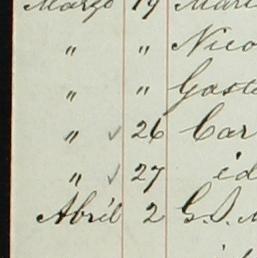 Marzo 19 Mari
" " Nico
" " Gast
" ✓ 26 Car
" ✓ 27 id
Abril 2 G. S. M